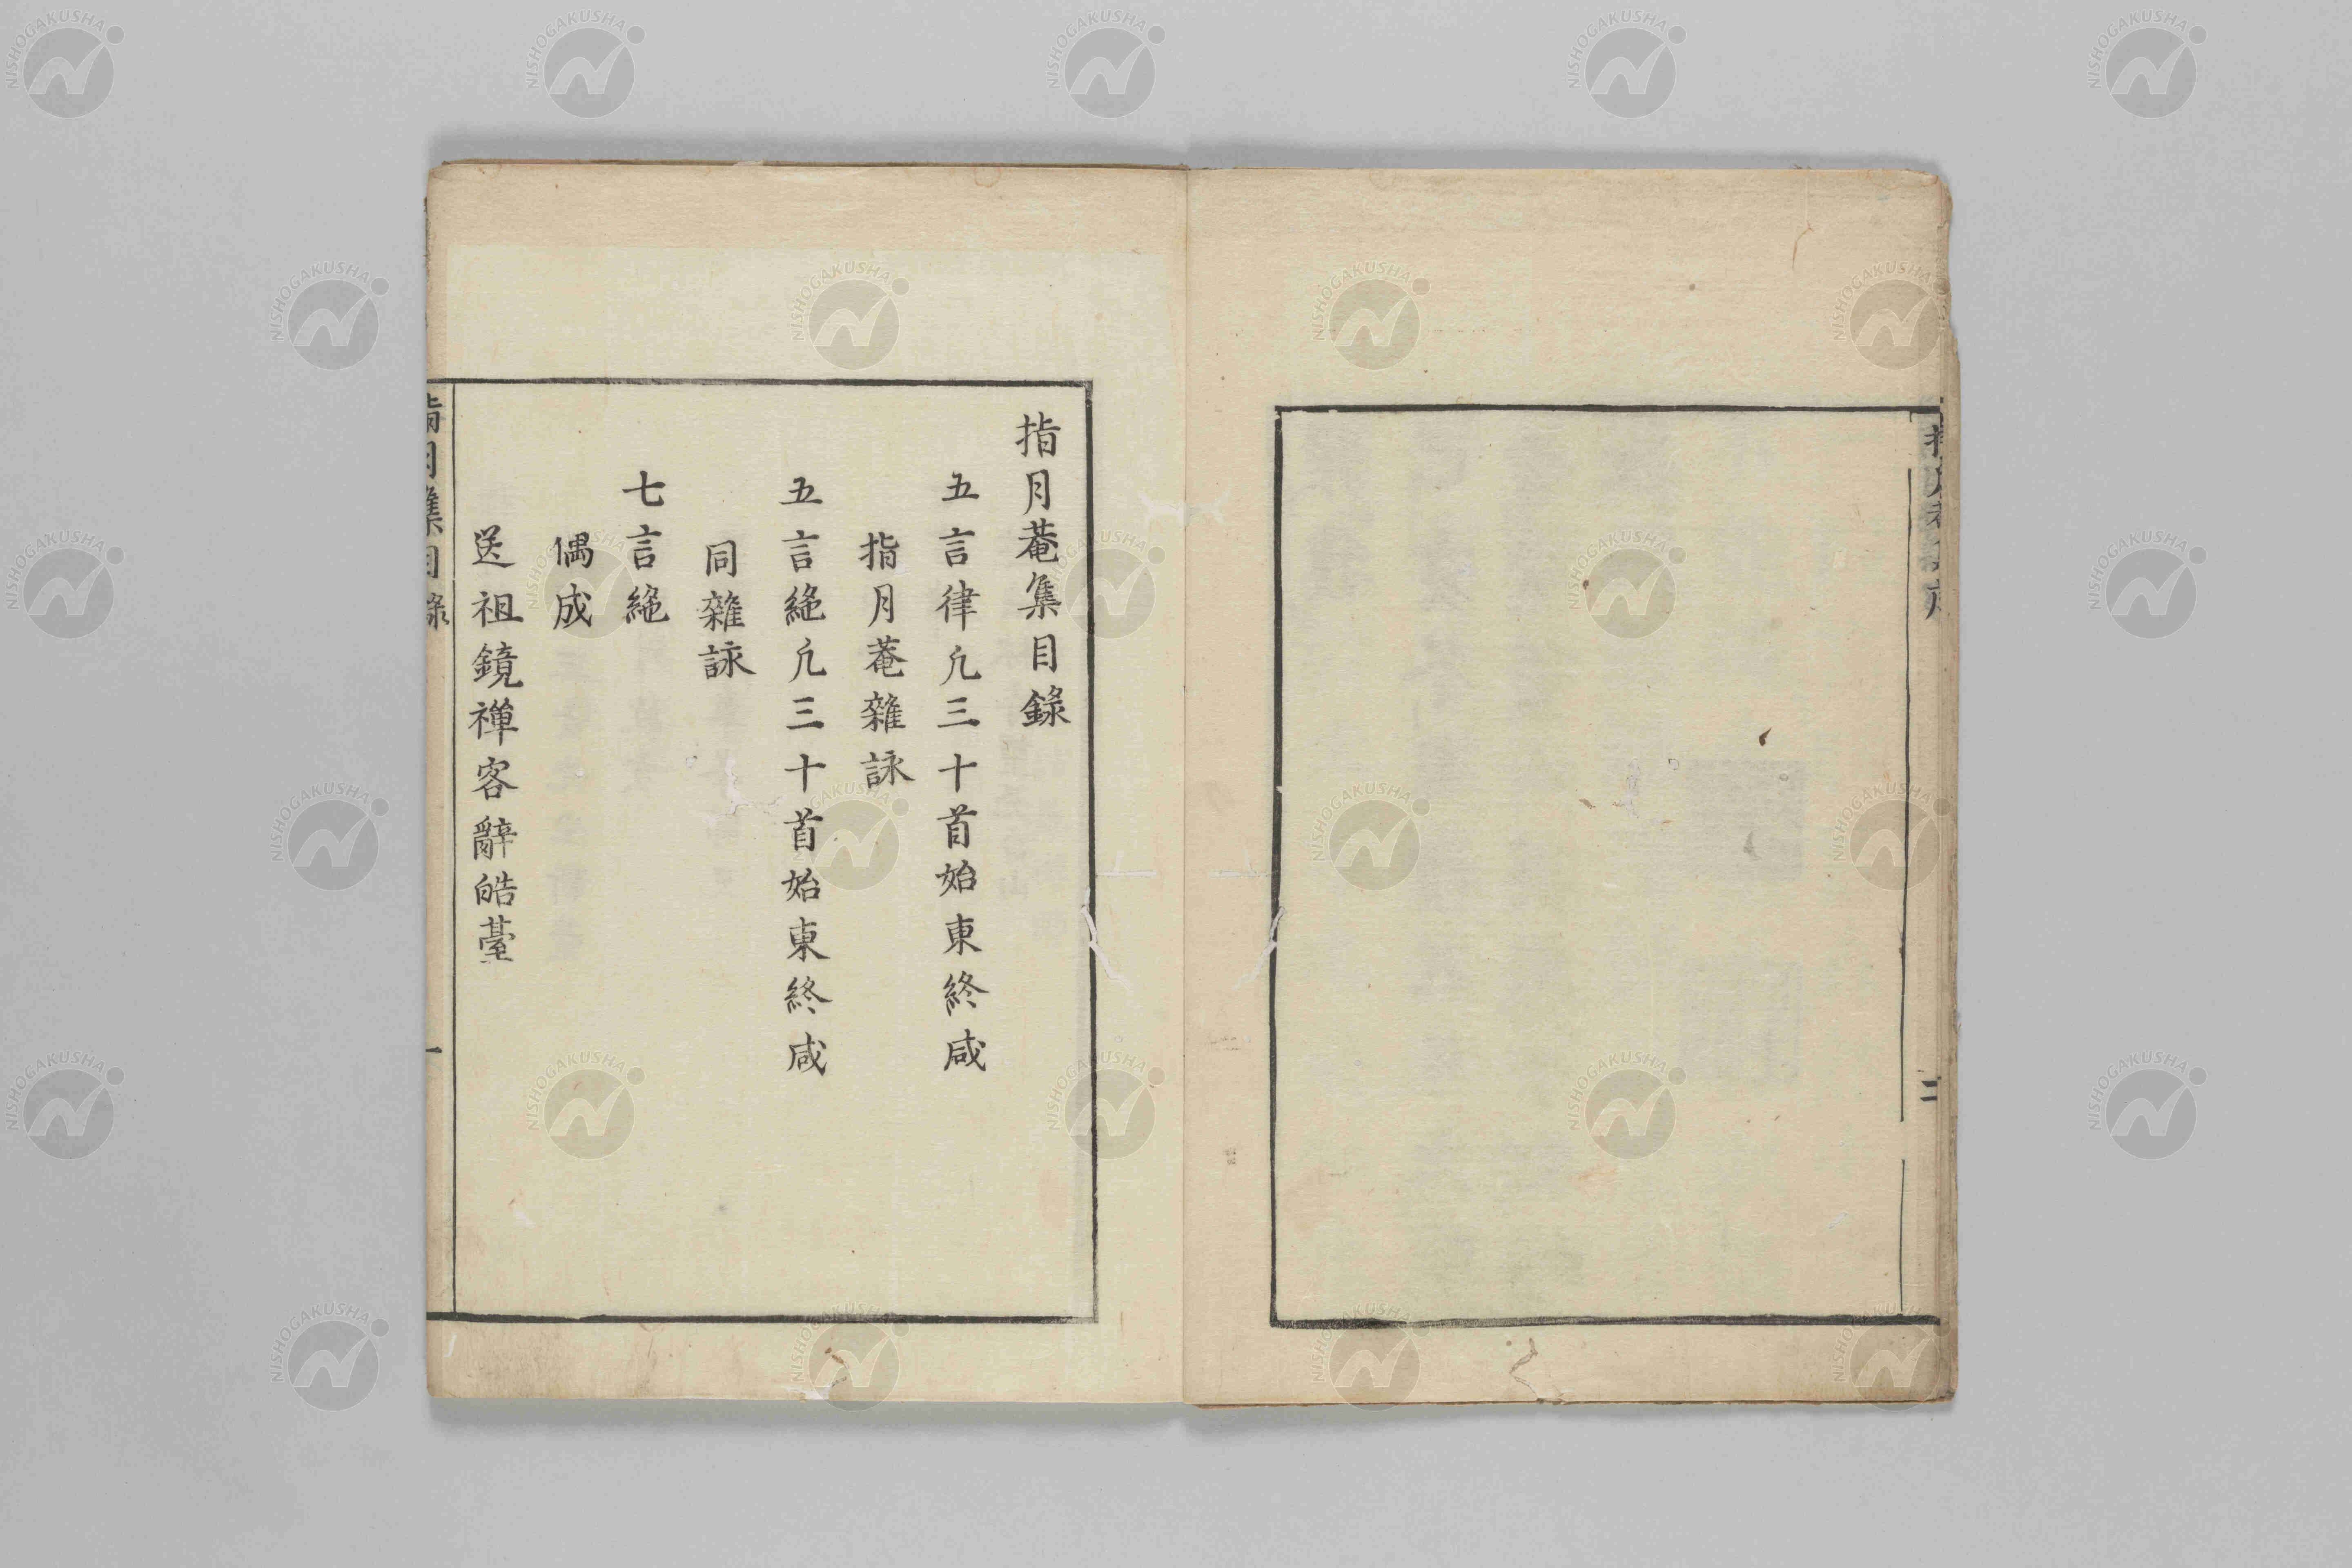 指月菴集目錄
五言律凢三十首始東終咸
指月菴雜詠
五言絕凢三十首始東終咸
同雜詠
七言絕
偶成
送祖鏡禅客辭皓臺
指月集目錄
一
二
NISHOGAKUSHA